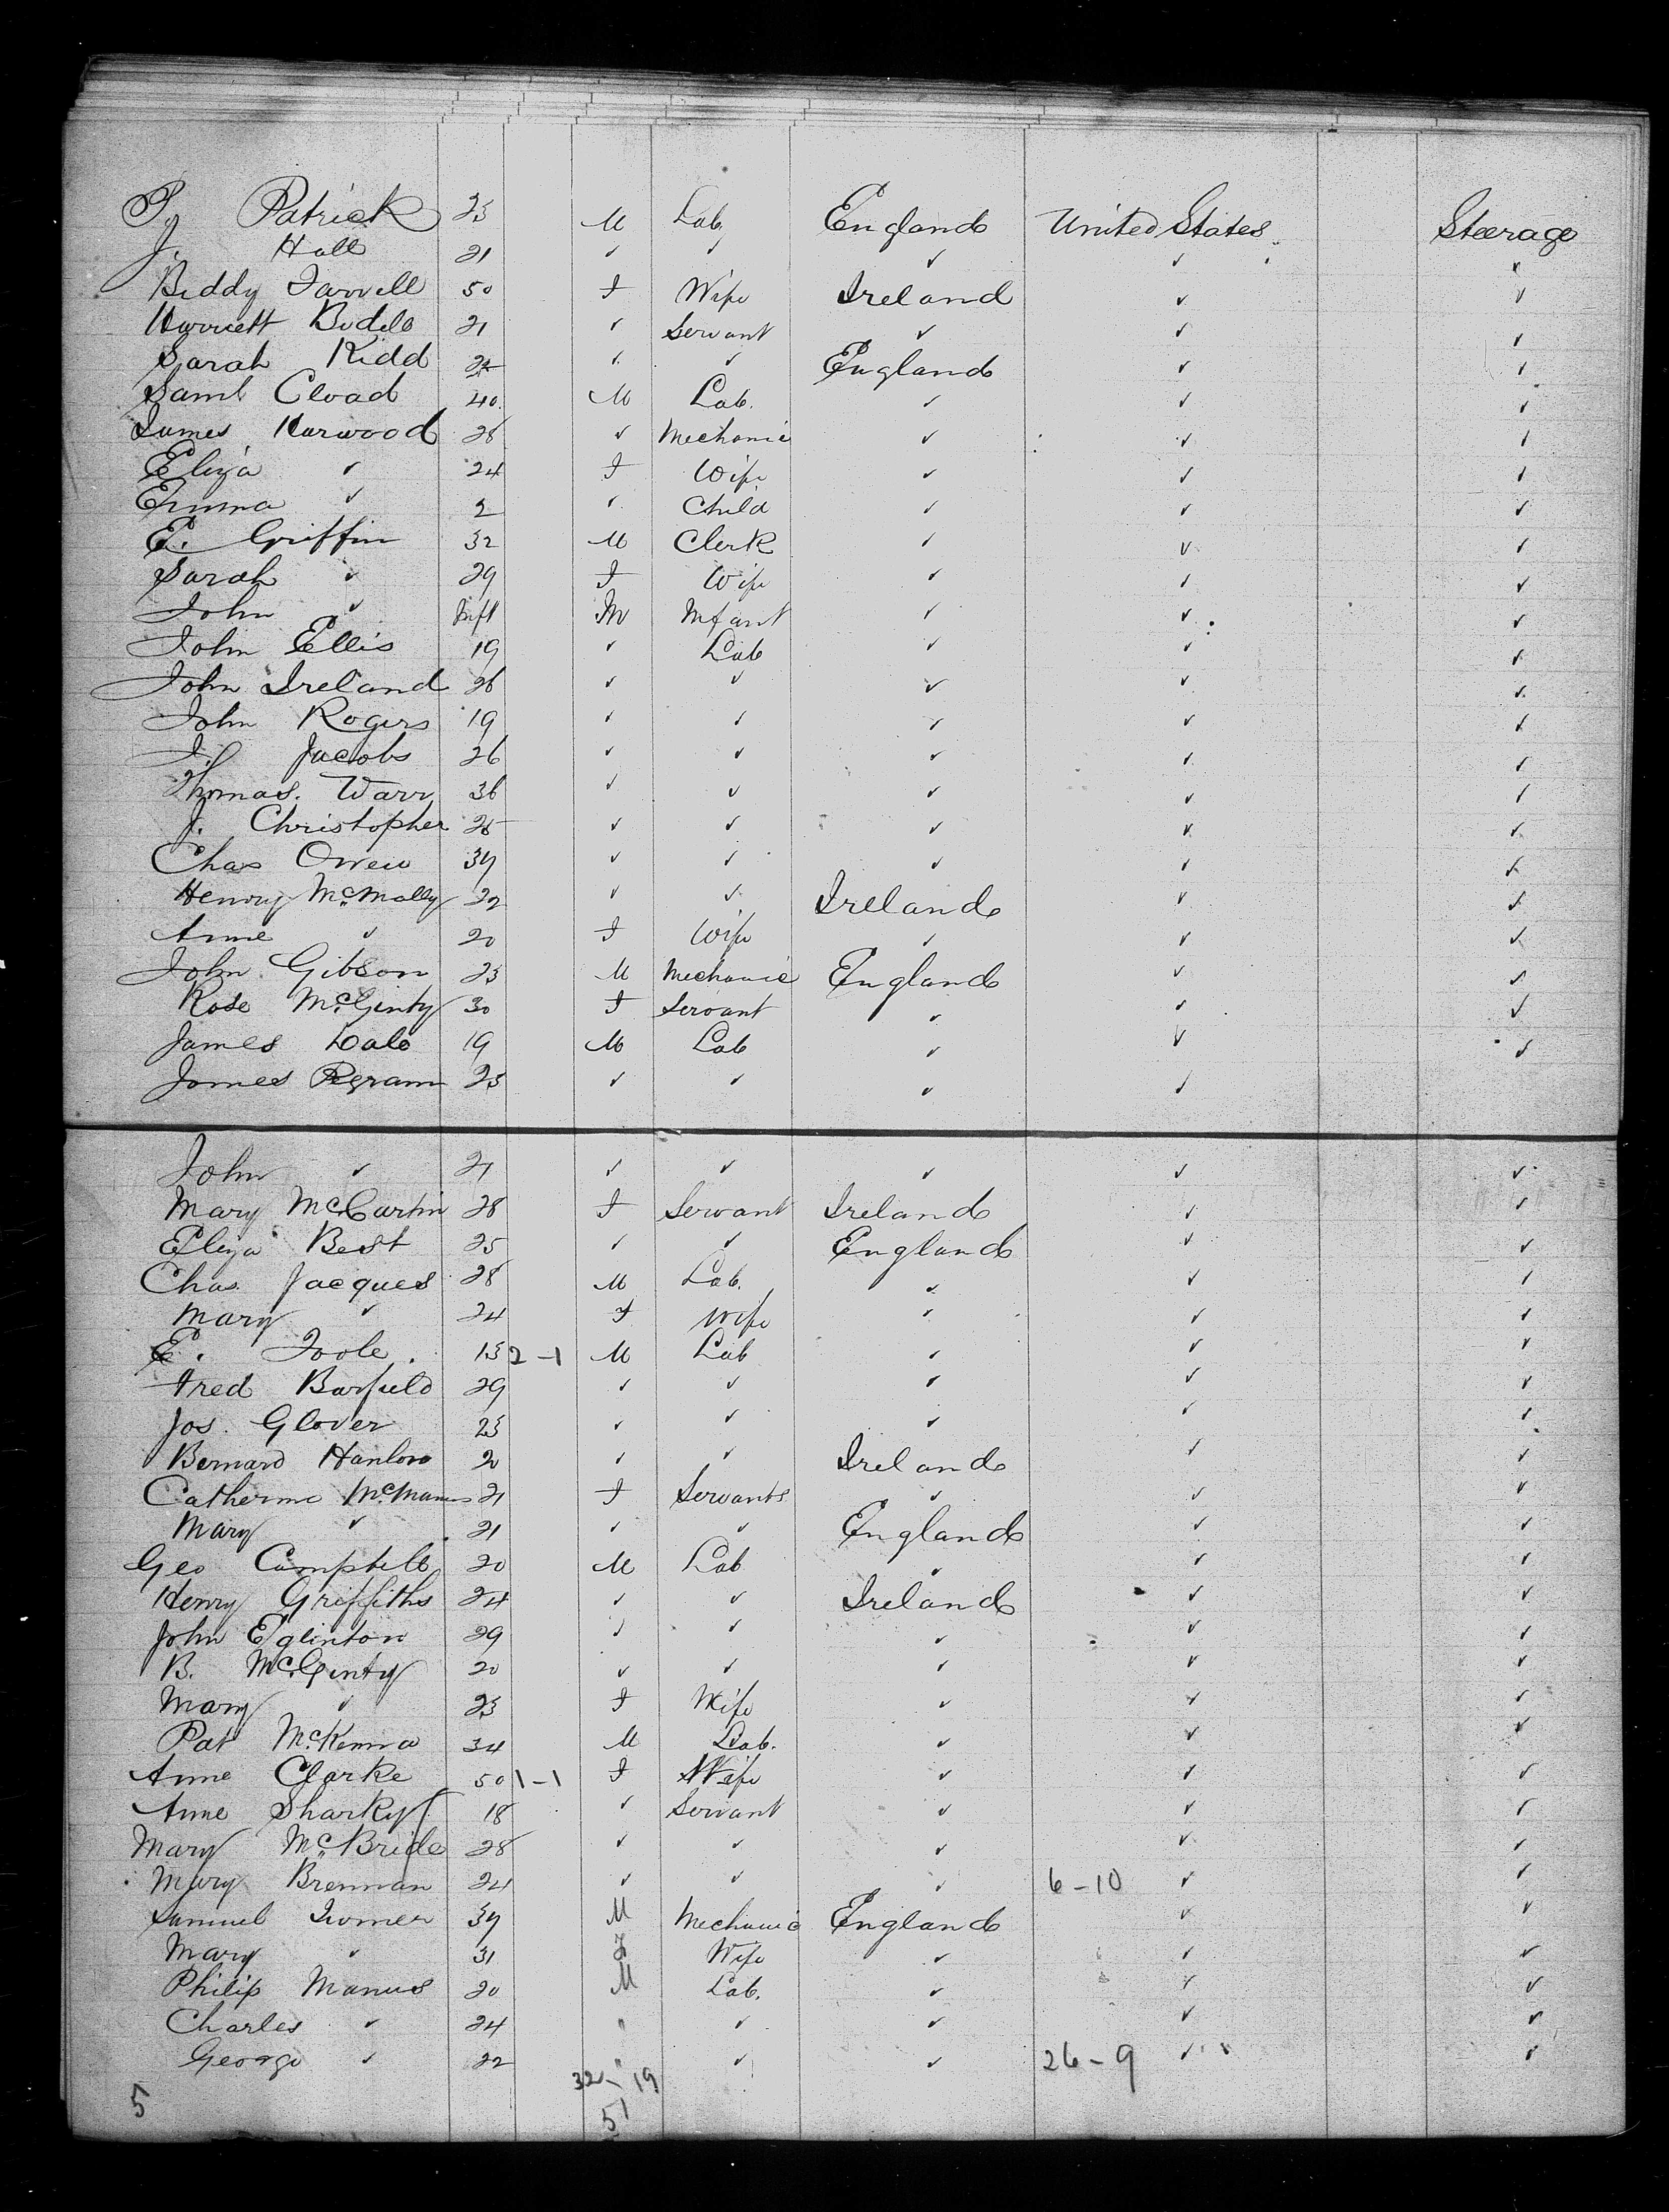 Py Patrick 23 M Lab. England United States Steerage
J. Hall 21 ✓ ✓ ✓ ✓ ✓
Biddy Farrell 50 F Wife Ireland ✓ ✓
Harriett 21 ✓ Servant ✓ ✓ ✓
Sarah Kidd ✓ ✓ England ✓ ✓
Saml Cload 40 M Lab. ✓ ✓ ✓
James Harwood 28 ✓ Mechanic ✓ ✓ ✓
Eliza ✓ 24 F Wife ✓ ✓ ✓
Emma ✓ 2 ✓ Child ✓ ✓ ✓
E. Griffin 32 M Clerk ✓ ✓ ✓
Sarah ✓ 29 F Wife ✓ ✓ ✓
John ✓ Inft M Infant ✓ ✓ ✓
John Ellis 19 ✓ Lab ✓ ✓ ✓
John Ireland 26 ✓ ✓ ✓ ✓ ✓
John Rogers 19 ✓ ✓ ✓ ✓ ✓
J. Jacobs 26 ✓ ✓ ✓ ✓ ✓
Thomas. Warr 36 ✓ ✓ ✓ ✓ ✓
J. Christopher 25 ✓ ✓ ✓ ✓ ✓
Chas Owen 37 ✓ ✓ ✓ ✓ ✓
Henry McMally 22 ✓ ✓ Ireland ✓ ✓
Anne ✓ 20 F Wife ✓ ✓ ✓
John Gibson 23 M Mechanic England ✓ ✓
Rose McGinty 30 F Servant ✓ ✓ ✓
James Dale 19 M Lab ✓ ✓ ✓
James Pegram 23 ✓ ✓ ✓ ✓
John ✓ 21 ✓ ✓ ✓ ✓ ✓
Mary McCartin 28 F Servant Ireland ✓ ✓
Eliza Best 25 ✓ ✓ England ✓ ✓
Chas. Jacques 28 M Lab. ✓ ✓ ✓
Mary ✓ 24 F Wife ✓ ✓ ✓
E. Toole. 13 2-1 M Lab ✓ ✓ ✓
Fred Barfield 29 ✓ ✓ ✓ ✓ ✓
Jos. Glover 23 ✓ ✓ ✓ ✓ ✓
Bernard Hanlon 20 ✓ ✓ Ireland ✓ ✓
Catherine McManus 21 F Servants ✓ ✓ ✓
Mary ✓ 21 ✓ ✓ England ✓ ✓
Geo Campbell 20 M Lab ✓ ✓ ✓
Henry Griffiths 24 ✓ ✓ Ireland ✓ ✓
John Eglinton 29 ✓ ✓ ✓ ✓ ✓
B. McGinty 20 ✓ ✓ ✓ ✓ ✓
Mary ✓ 23 F Wife ✓ ✓ ✓
Pat McKenna 34 M Lab. ✓ ✓ ✓
Anne Clarke 50 1-1 F Wife ✓ ✓ ✓
Anne Sharky 18 ✓ Servant ✓ ✓ ✓
Mary McBride 28 ✓ ✓ ✓ ✓ ✓
Mary Brennan 24 ✓ ✓ ✓ 6-10 ✓ ✓
Samuel 37 M Mechanic England ✓ ✓
Mary ✓ 31 F Wife ✓ ✓ ✓
Philip Manus 20 M Lab. ✓ ✓ ✓
Charles ✓ 24 ✓ ✓ ✓ ✓ ✓
George ✓ 22 ✓ ✓ ✓ 26-9 ✓ ✓
32-19
5 51